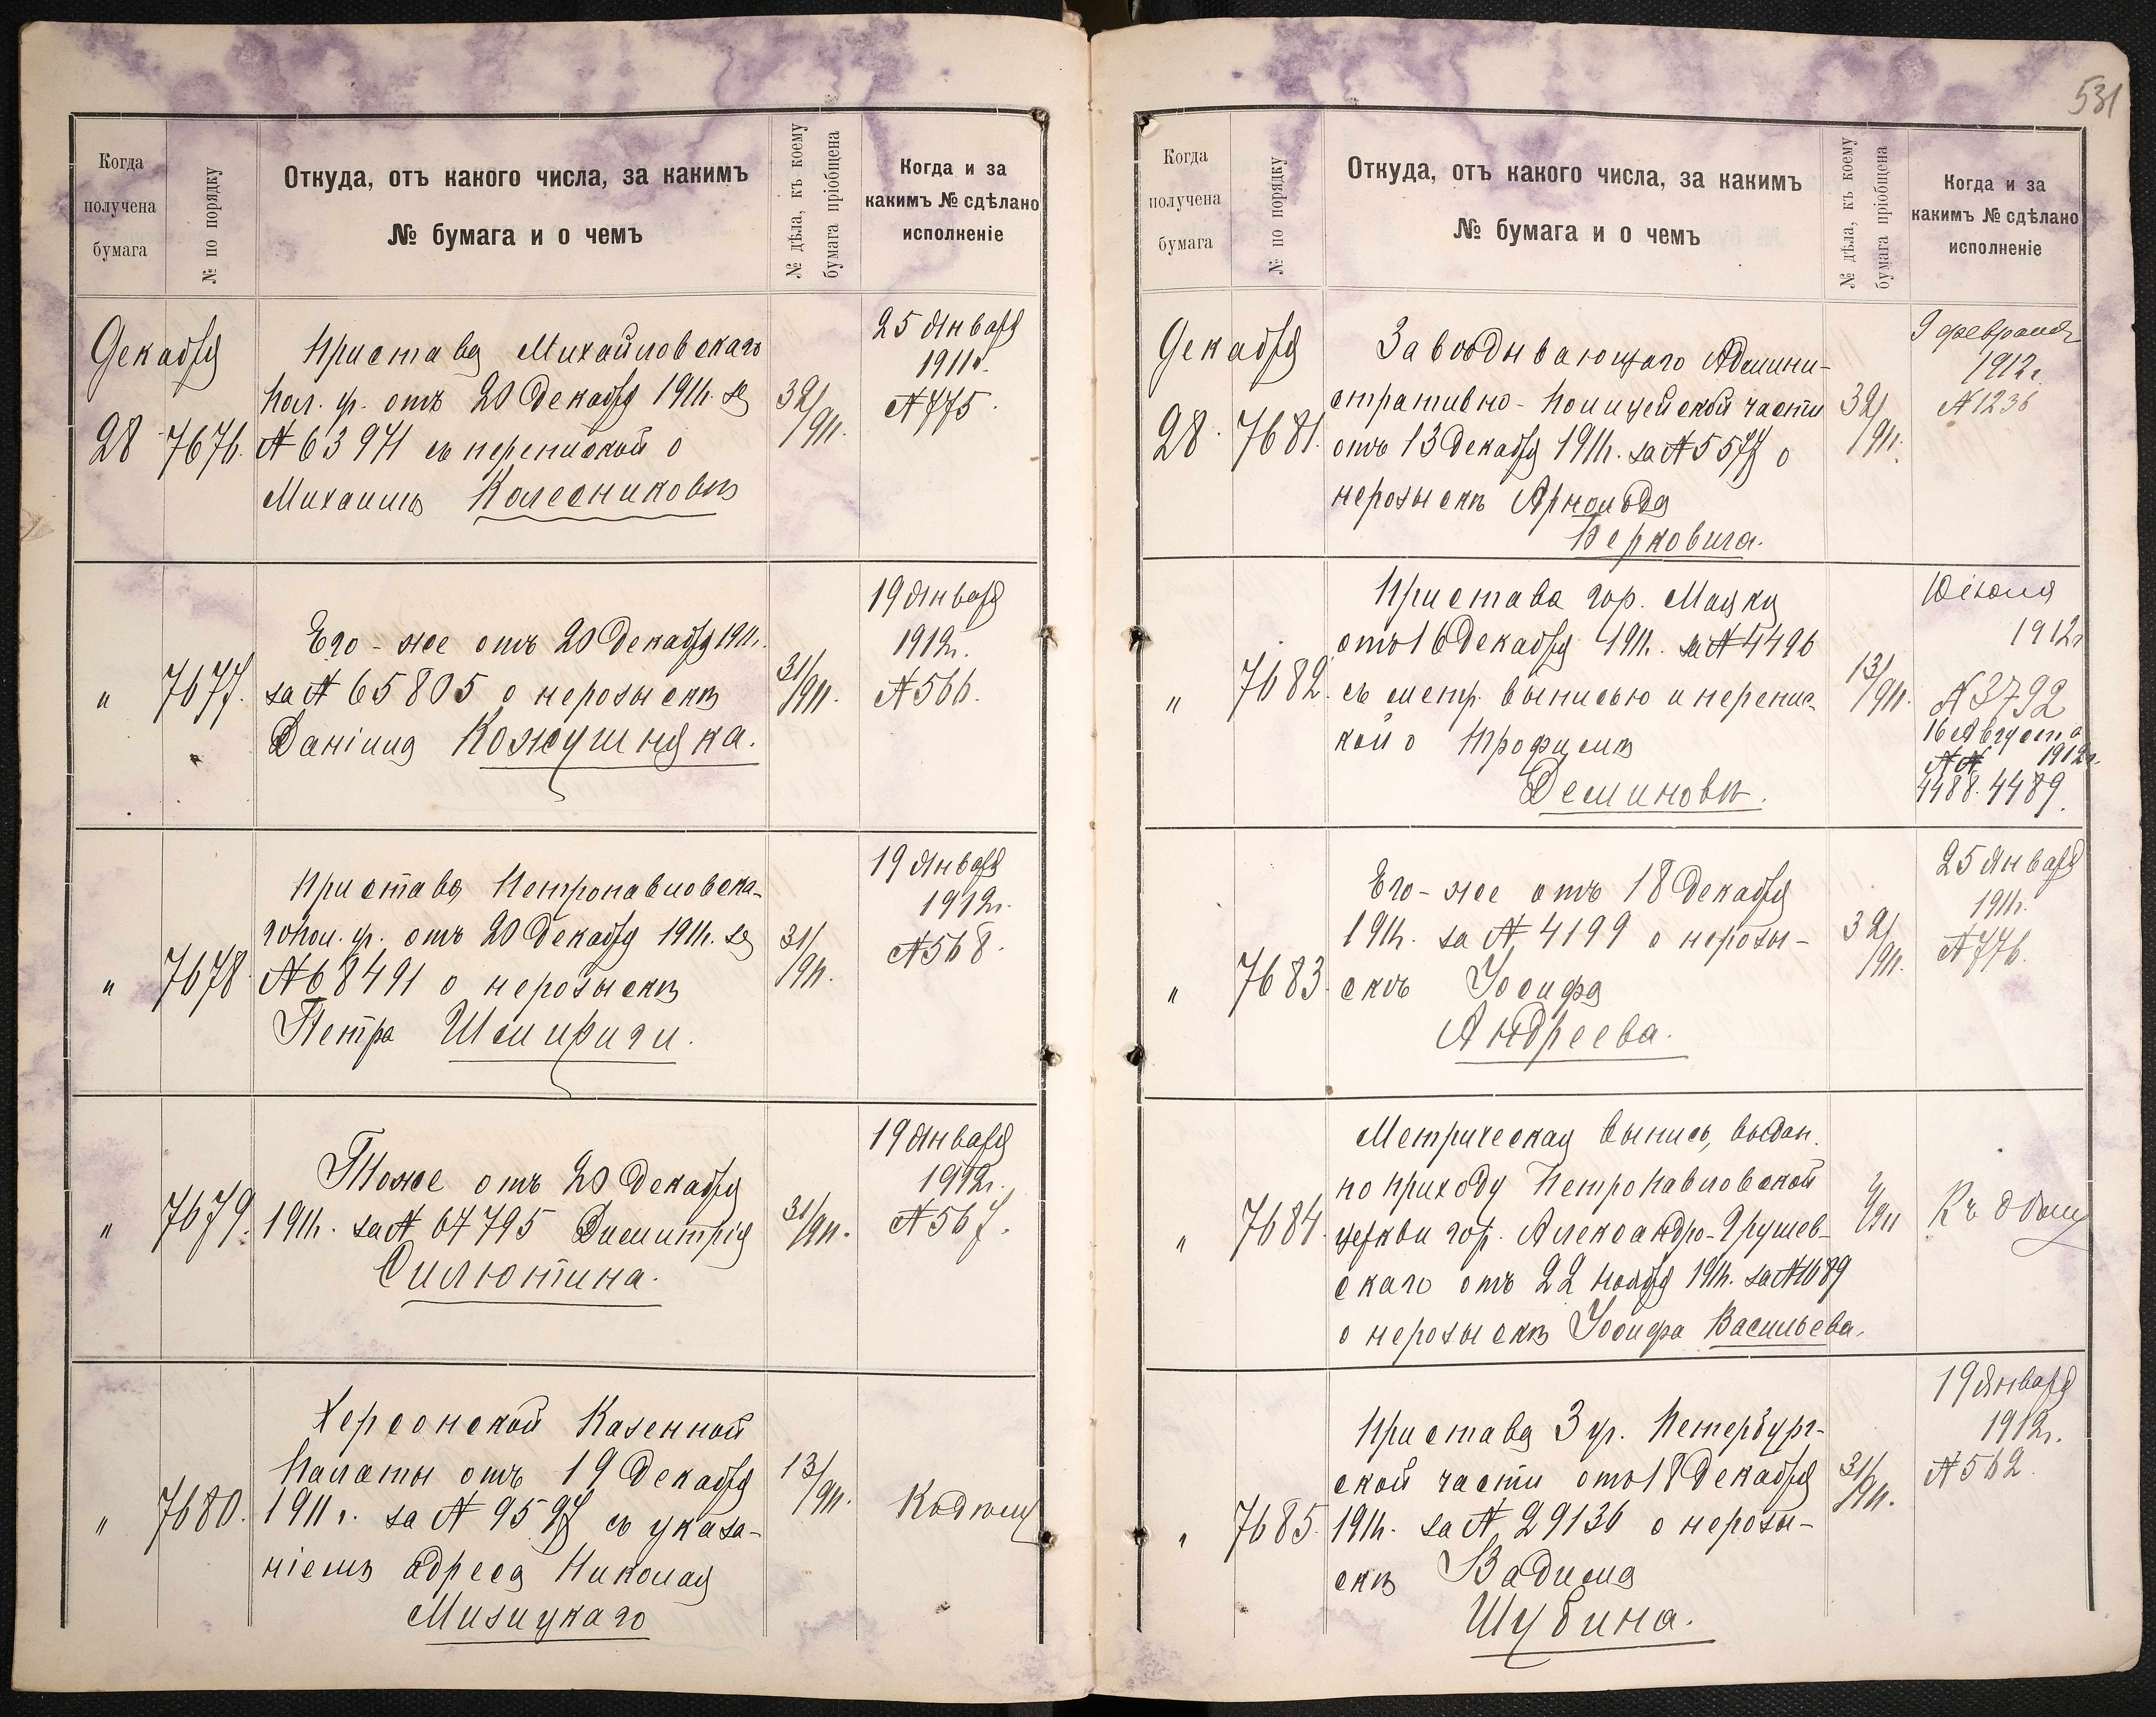 531
Когда
получена
бумага
№ по порядку
Откуда, отъ какого числа, за какимъ
№ бумага и о чемъ
№ дѣла, къ коему
бумага пріобщена
Когда и за
какимъ № сдѣлано
исполненіе
Декабря
28
7676.
Пристава Михайловскаго
пол. у. отъ 20 Декабря 1911г. за
№ 63971 съ перепиской о
Михаилѣ Колесниковѣ
32/911.
25 Января
1911г.
№ 775.
"
7677.
Его-же отъ 20 Декабря 1911г.
за № 65805 о нерозыскѣ
Даніила Кожушняка.
31/911.
19 Января
1912г.
№ 566.
"
7678
Пристава Петропавловска-
го пол. у. отъ 20 Декабря 1911г. за
№ 68491 о нерозыскѣ
Петра
31/911.
19 Января
1912г.
№ 568.
"
7679.
Тоже отъ 20 Декабря
1911г. за № 67795 Димитрія
Силютина.
31/911.
19 Января
1912г.
№ 567.
"
7680.
Херсонской Казенной
Палаты отъ 19 Декабря
1911 г. за № 9597 съ указа-
ніемъ адреса Николая
Мизицкаго
13/911.
Къ дѣлу
Когда
получена
бумага
№ по порядку
Откуда, отъ какого числа, за какимъ
№ бумага и о чемъ
№ дѣла, къ коему
бумага пріобщена
Когда и за
какимъ № сдѣлано
исполненіе
Декабря
28.
7681.
Завѣдывающаго Админи-
стративно-Полицейской части
отъ 13 Декабря 1911г. за № 5577 о
нерозыскѣ Арнольда
Берковича.
32/911.
9 февраля
1912г.
№ 1236
"
7682.
Пристава гор. Маяки
отъ 16 Декабря 1911г. за № 4496
съ метр. выписью и перепис-
кой о Трофимѣ
Деминовѣ.
13/911.
Іюля
1912г
№ 3792
16 Августа
1912г.
№№
4488. 4489.
"
7683
Его-же отъ 18 Декабря
1911г. за № 4199 о нерозы-
скѣ Іосифа
Андреева.
32/911.
25 Января
1911г.
№ 776.
"
7684.
Метрическая выпись, выдан.
по приходу Петропавловской
церкви гор. Александро-Грушев-
скаго отъ 22 Ноября 1911г. за № 1089
о нерозыскѣ Іосифа Васильева.
Къ дѣлу
"
7685.
Пристава 3 уч. Петербург-
ской части отъ 18 Декабря
1911г. за № 29136 о нерозы-
скѣ Вадима
Шубина.
31/911.
19 Января
1912г.
№ 562.